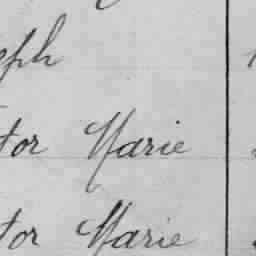 eph
tor Marie
tor Marie